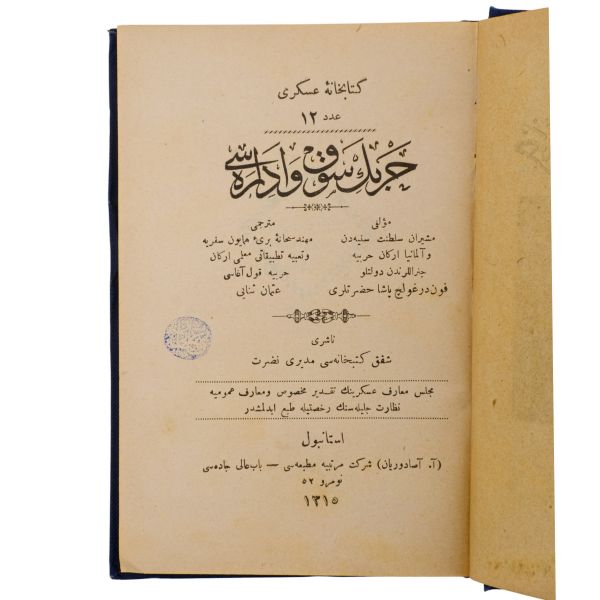 كتابخانهٔ عسكرى
عدد ١٢
حربك سوق و اداره سى
مؤلفى
مشيران سلطنت سنيه دن
و آلمانيا اركان حربيه
جنراللرندن دولتلو
فون درغولچ پاشا حضرتلرى
مترجمى
مهندسخانهٔ برىء همايون سفريه
و تعبيه تطبيقاتى معلمى اركان
حربيه قول آغاسى
عثمان سنايى
ناشرى
شفق كتبخانه سى مديرى نضرت
مجلس معارف عسكرينك تقدير مخصوص و معارف عموميه
نظارت جليله سنك رخصتيله طبع ايدلمشدر
استانبول
(آ. آصادوريان) شركت مرتبيه مطبعه سى — باب عالى جاده سى
نومرو ٥٢
١٣١٥